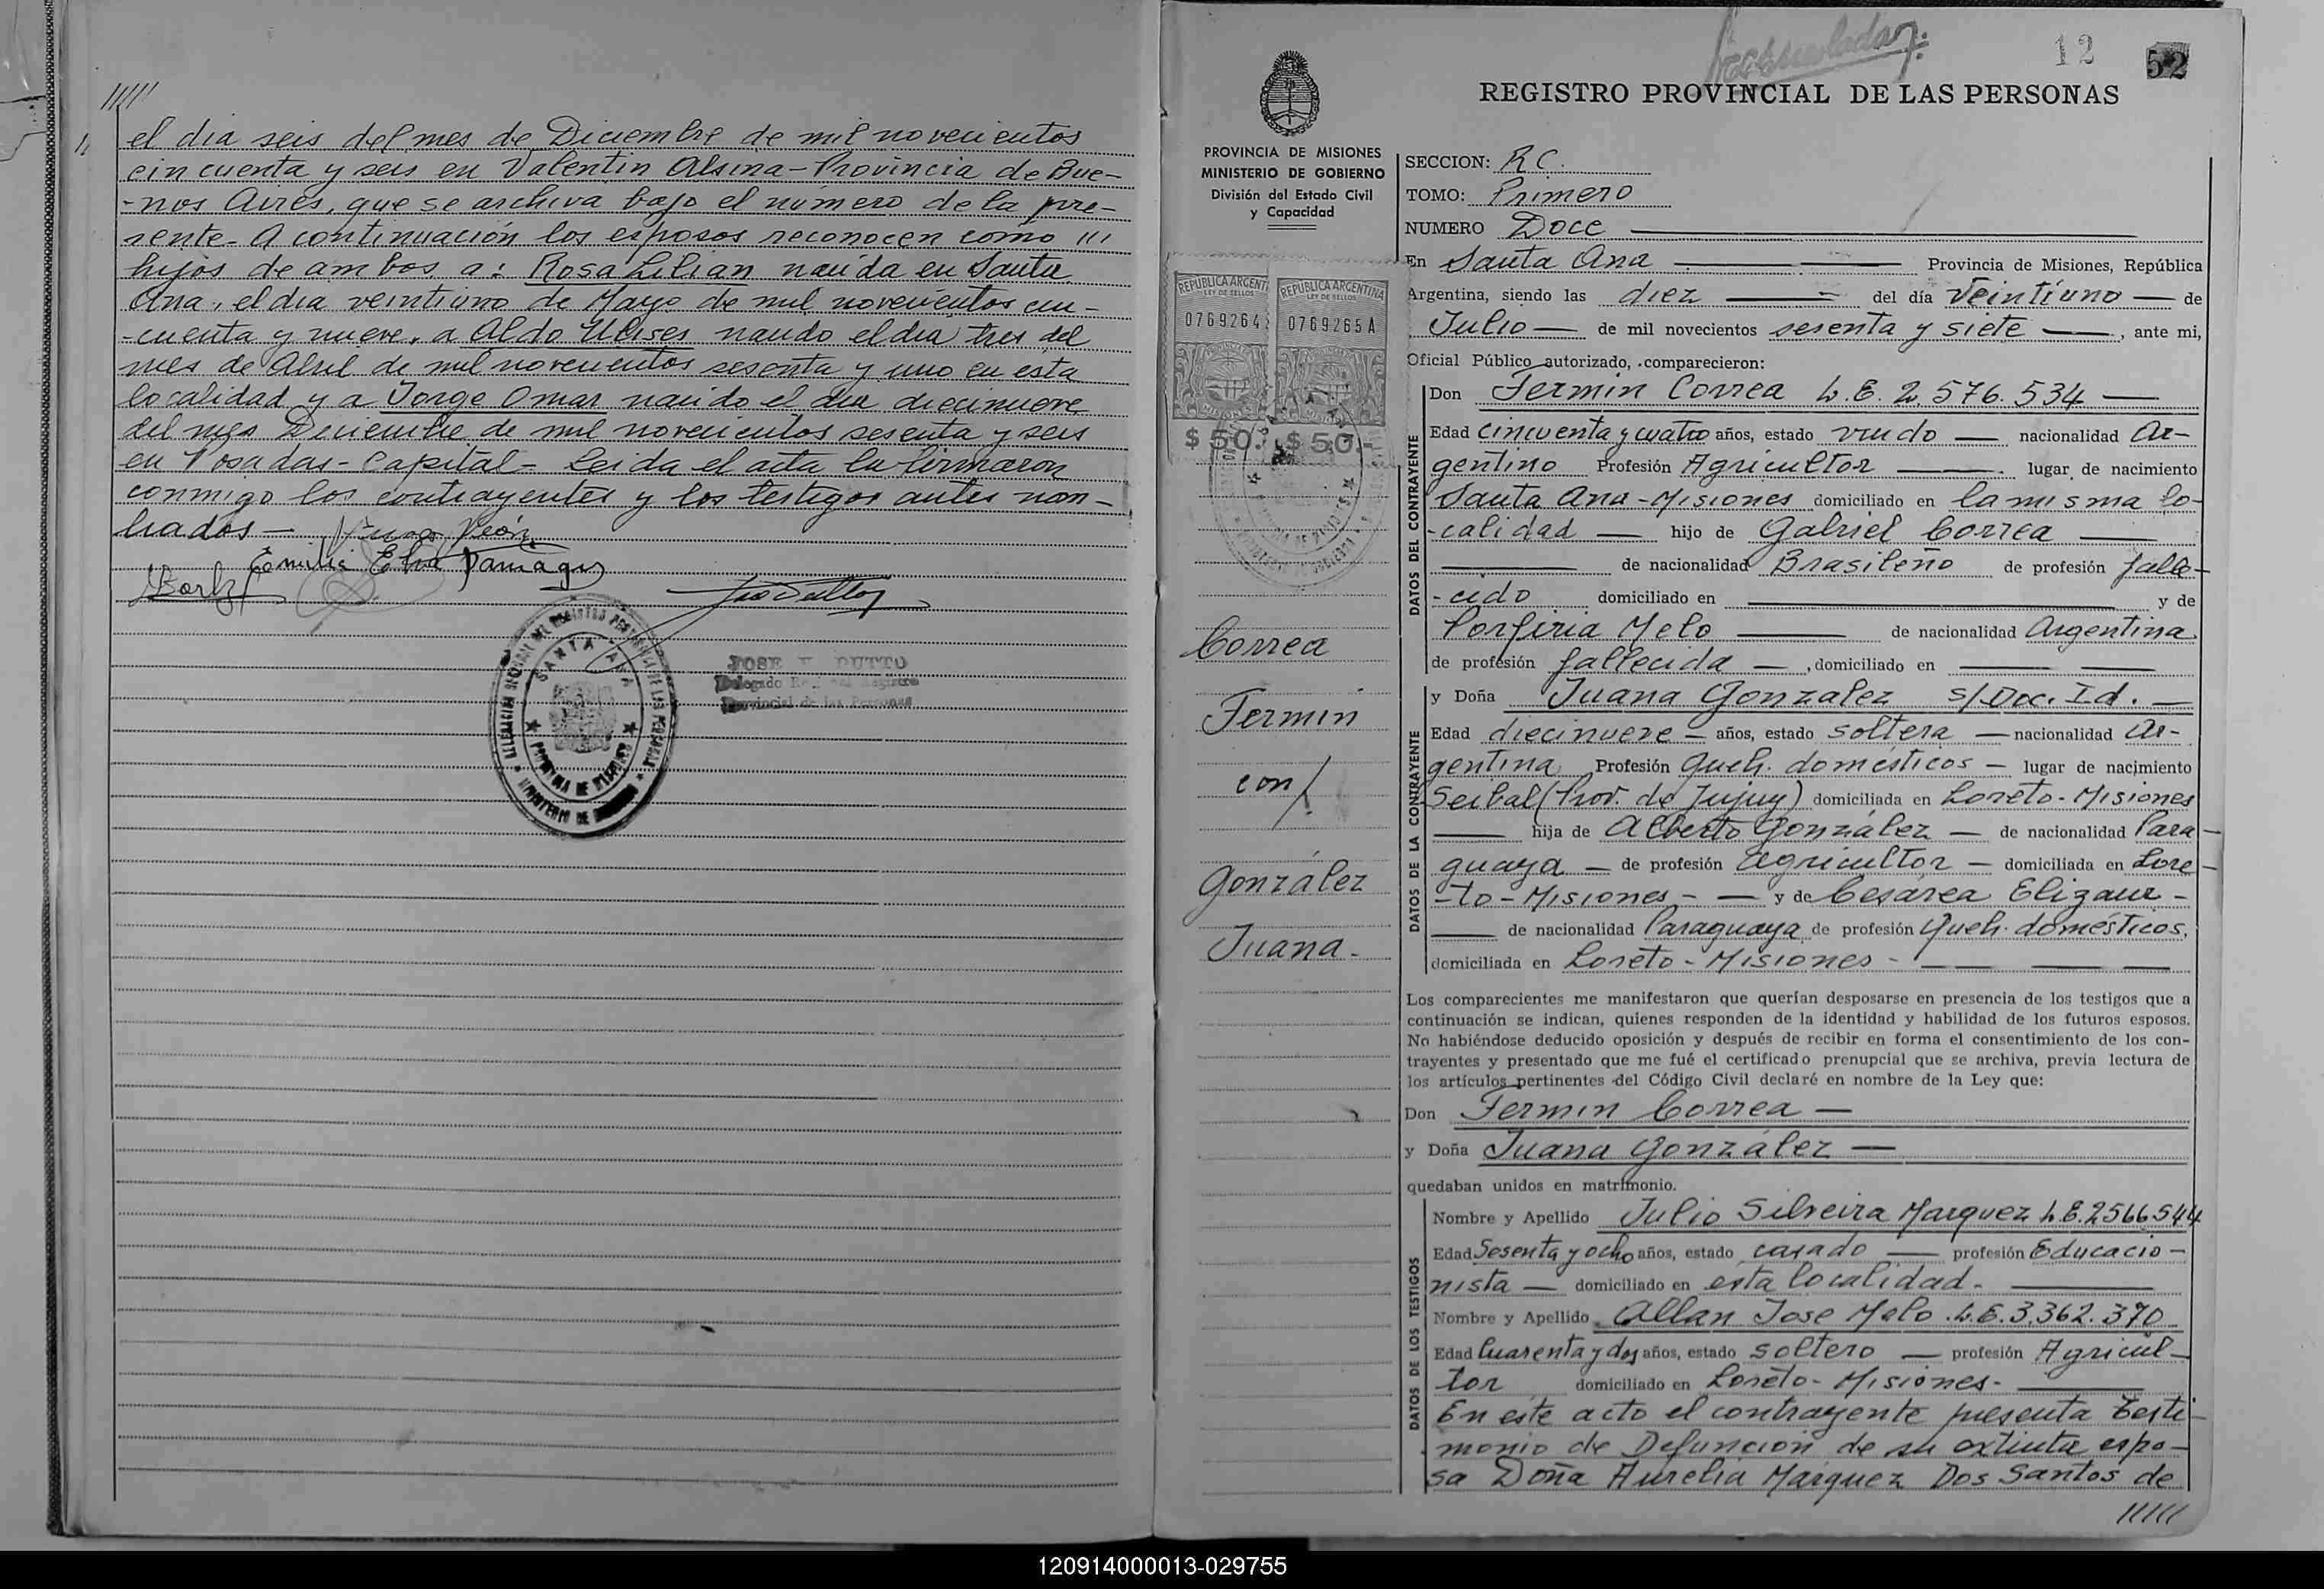 el dia seis del mes de Diciembre de mil novecientos
cincuenta y seis en Valentin Alsina-Provincia de Bue-
-nos Aires, que se archiva bajo el número de la pre-
sente- A continuación los esposos reconocen como ///
hijos de ambos a: Rosa Lilian nacida en Santa
Ana, el dia veintiuno de Mayo de mil novecientos cin-
-cuenta y nueve, a Aldo Ulises nacido el dia tres del
mes de Abril de mil novecientos sesenta y uno en esta
localidad y a Jorge Omar nacido el dia diecinueve
del mes Deciembre de mil novecientos sesenta y seis
en Posadas-Capital- Leida el acta la firmaron
conmigo los contrayentes y los testigos antes nom-
brados-
Emilia Elva
SANTA ANA
PROVINCIA DE MISIONES
JOSE DUTTO
Delegado Registro
Provincial de las Personas
12
52
REGISTRO PROVINCIAL DE LAS PERSONAS
PROVINCIA DE MISIONES
MINISTERIO DE GOBIERNO
División del Estado Civil
y Capacidad
REPUBLICA ARGENT
LEY DE SELLOS
0769264
$ 50.-
REPUBLICA ARGENTINA
LEY DE SELLOS
0769265A
MISIONES
$ 50.-
Correa
Fermin
con/
González
Juana-
SECCION: R.C.
TOMO: Primero
NUMERO Doce
En Santa Ana Provincia de Misiones, República
Argentina, siendo las diez del día Veintiuno de
Julio de mil novecientos sesenta y siete, ante mi,
Oficial Público autorizado, comparecieron:
DATOS DEL CONTRAYENTE
Don Fermin Correa L.E. 2.576.534
Edad cincuenta y cuatro años, estado viudo nacionalidad Ar-
gentino Profesión Agricultor lugar de nacimiento
Santa Ana-Misiones domiciliado en la misma lo-
-calidad hijo de Gabriel Correa
de nacionalidad Brasileño de profesión falle-
-cido domiciliado en y de
Porfiria Melo de nacionalidad Argentina
de profesión fallecida, domiciliado en
DATOS DE LA CONTRAYENTE
y Doña Juana Gonzalez s/Doc. Id.
Edad diecinueve años, estado soltera nacionalidad Ar-
gentina Profesión Queh. domésticos lugar de nacimiento
Seibal (Prov. de Jujuy) domiciliada en Loreto-Misiones
hija de Alberto González de nacionalidad Para-
guaya de profesión Agricultor domiciliada en Lore-
-to-Misiones- y de Cesárea Elizaur-
de nacionalidad Paraguaya de profesión Queh. domésticos,
domiciliada en Loreto-Misiones-
Los comparecientes me manifestaron que querían desposarse en presencia de los testigos que a
continuación se indican, quienes responden de la identidad y habilidad de los futuros esposos.
No habiéndose deducido oposición y después de recibir en forma el consentimiento de los con-
trayentes y presentado que me fué el certificado prenupcial que se archiva, previa lectura de
los artículos pertinentes del Código Civil declaré en nombre de la Ley que:
Don Fermin Correa
y Doña Juana González
quedaban unidos en matrimonio.
DATOS DE LOS TESTIGOS
Nombre y Apellido Julio Silveira Marquez L.E.2566544
Edad Sesenta y ocho años, estado casado profesión Educacio-
nista domiciliado en esta localidad-
Nombre y Apellido Allan Jose Melo L.E.3.362.370
Edad Cuarenta y dos años, estado soltero profesión Agricul-
tor domiciliado en Loreto-Misiones-
En este acto el contrayente presenta testi-
monio de Defunción de su extinta espo-
sa Doña Aurelia Marquez Dos Santos de
//////
120914000013-029755